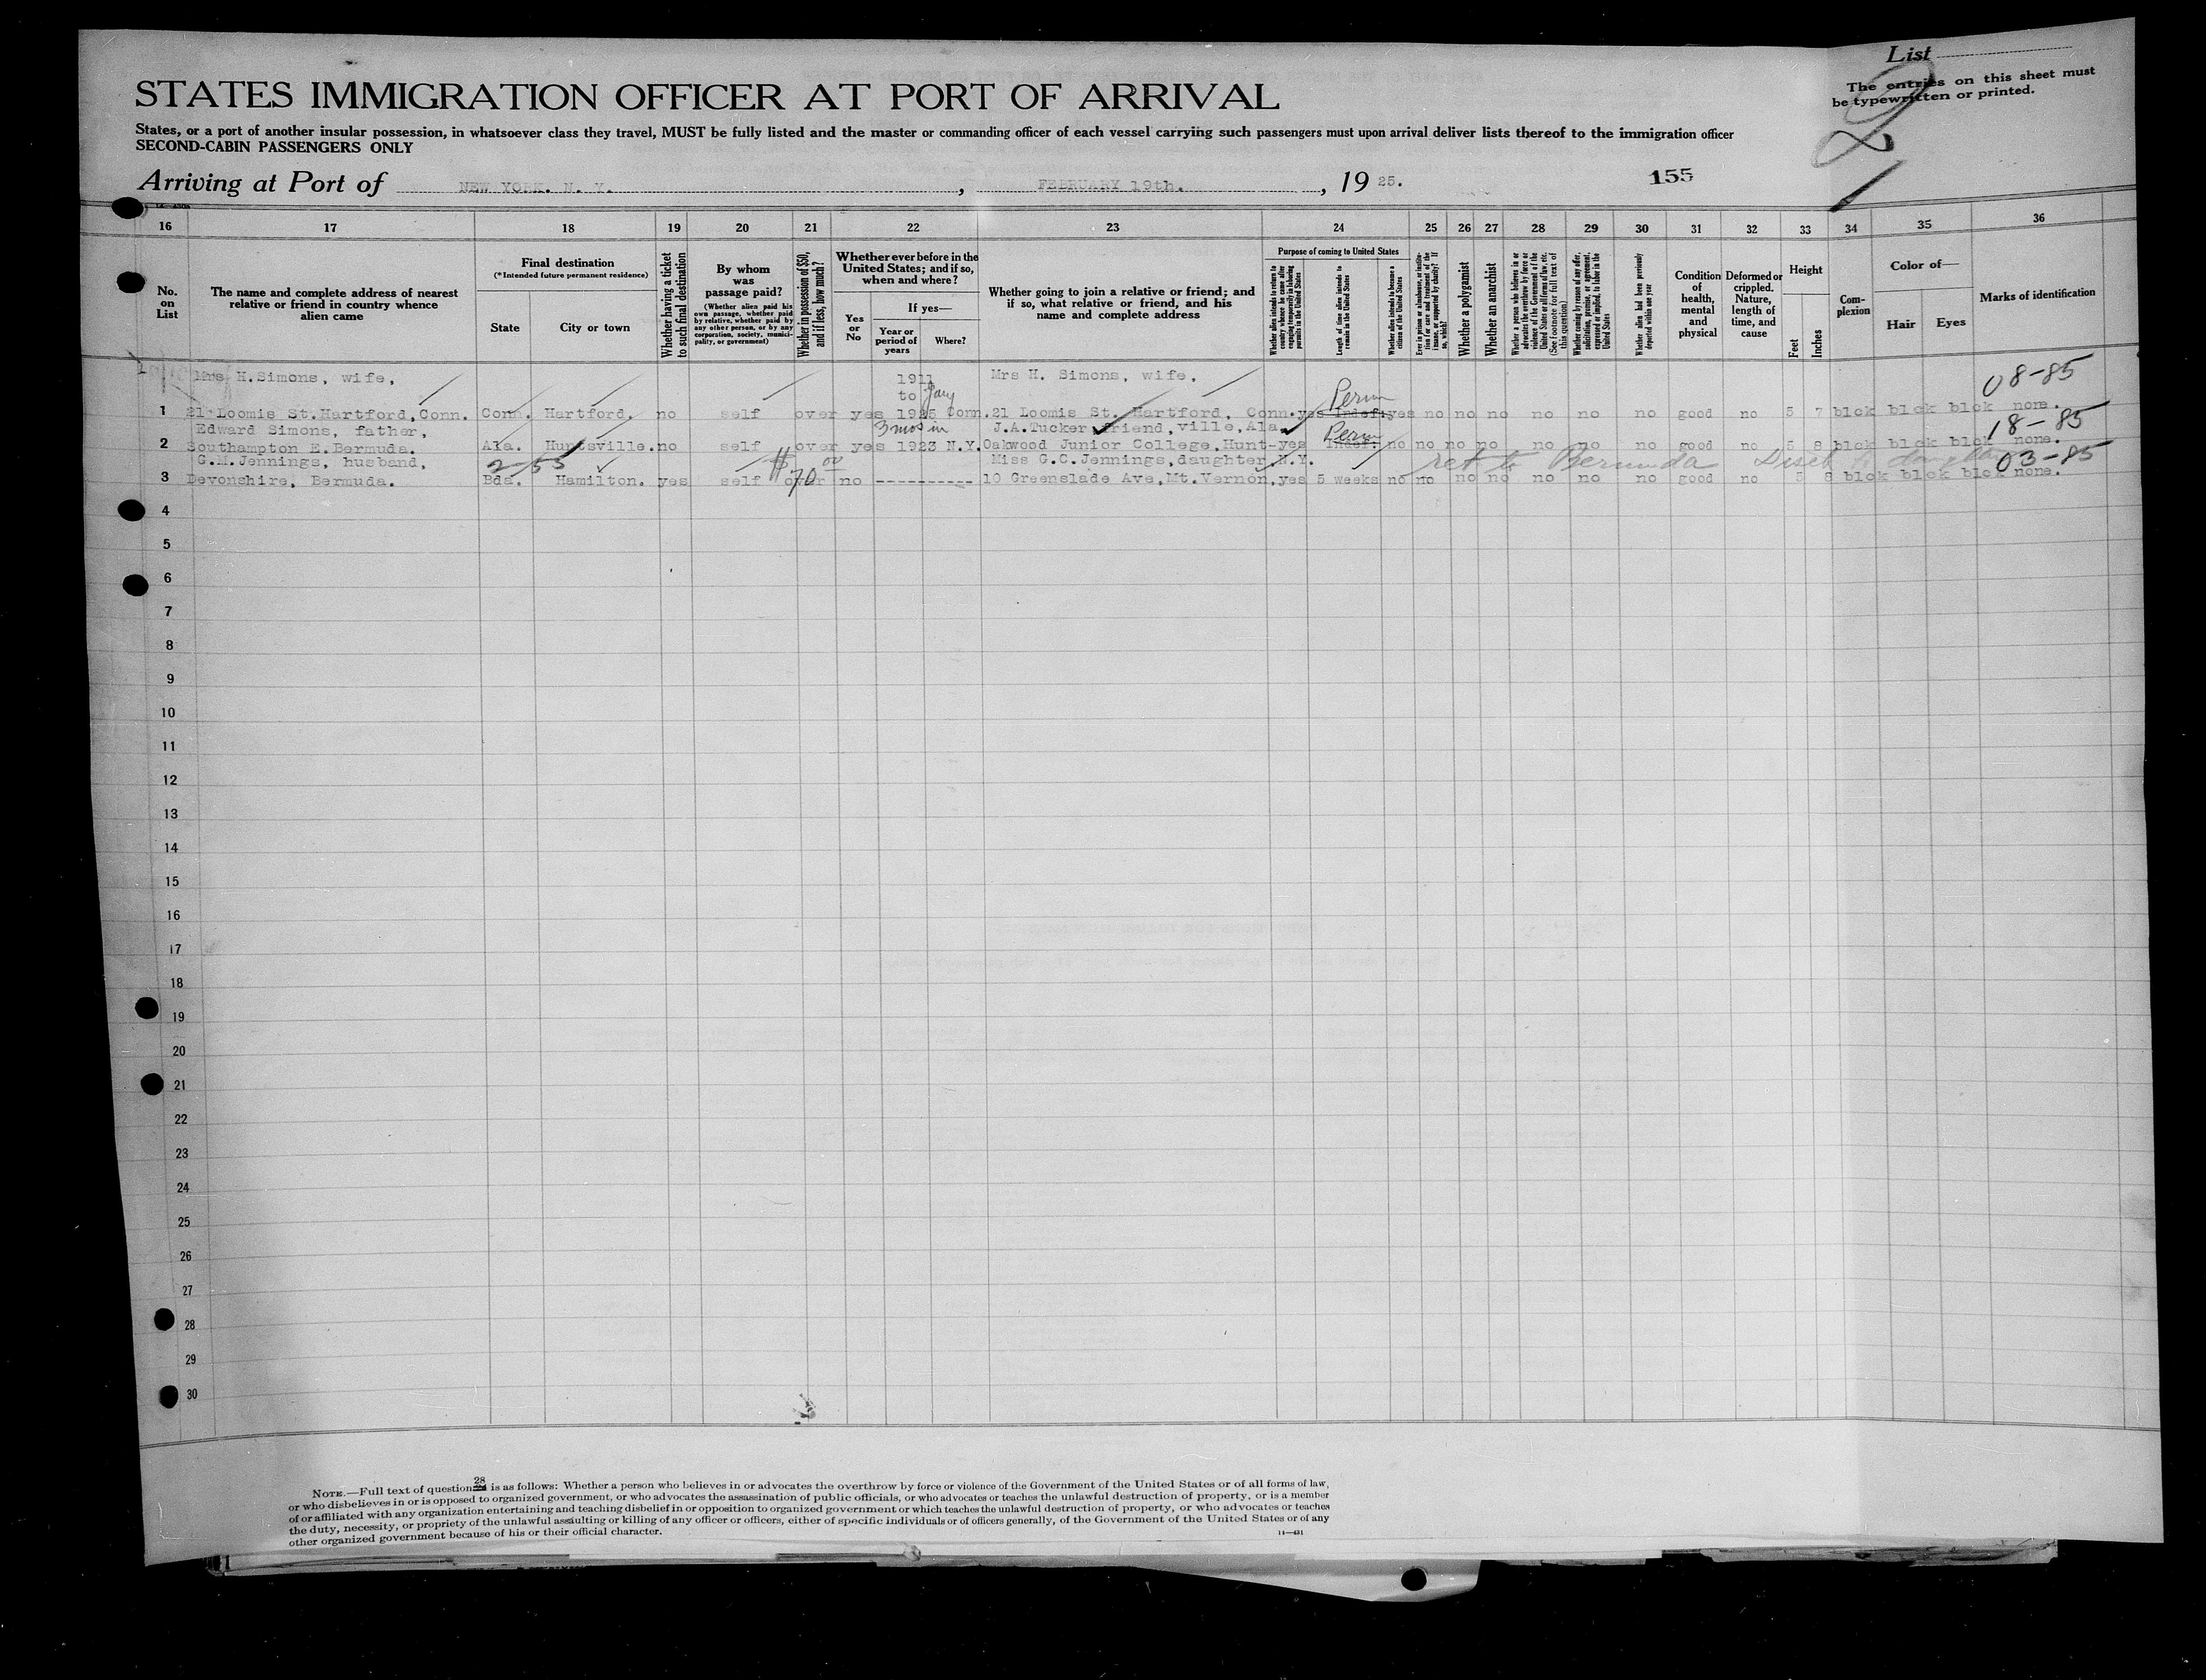 List
The entries on this sheet must
be typewritten or printed.
STATES IMMIGRATION OFFICER AT PORT OF ARRIVAL
States, or a port of another insular possession, in whatsoever class they travel, MUST be fully listed and the master or commanding officer of each vessel carrying such passengers must upon arrival deliver lists thereof to the immigration officer
SECOND-CABIN PASSENGERS ONLY
Arriving at Port of NEW YORK. N. Y. , FEBRUARY 19th. , 19 25. 155
16 17 18 19 20 21 22 23 24 25 26 27 28 29 30 31 32 33 34 35 36
No. on List
The name and complete address of nearest relative or friend in country whence alien came
Final destination
(*Intended future permanent residence)
State
City or town
Whether having a ticket to such final destination
By whom was passage paid?
(Whether alien paid his own passage, whether paid by relative, whether paid by any other person, or by any corporation, society, municipality, or government)
Whether in possession of $50, and if less, how much?
Whether ever before in the United States; and if so, when and where?
Yes or No
If yes—
Year or period of years
Where?
Whether going to join a relative or friend; and if so, what relative or friend, and his name and complete address
Purpose of coming to United States
Whether alien intends to return to country whence he came after engaging temporarily in laboring pursuits in the United States
Length of time alien intends to remain in the United States
Whether alien intends to become a citizen of the United States
Ever in prison or almshouse, or institution for care and treatment of the insane, or supported by charity? If so, which?
Whether a polygamist
Whether an anarchist
Whether a person who believes in or advocates the overthrow by force or violence of the Government of the United States or all forms of law, etc. (See footnote for full text of this question)
Whether coming by reason of any offer, solicitation, promise, or agreement, expressed or implied, to labor in the United States
Whether alien had been previously deported within one year
Condition of health, mental and physical
Deformed or crippled. Nature, length of time, and cause
Height
Feet
Inches
Complexion
Color of—
Hair
Eyes
Marks of identification
Mrs H.Simons, wife, 1911 Mrs H. Simons, wife. 08-85
to Jany Perm
1 21 Loomis St.Hartford,Conn. Conn. Hartford. no self over yes 1925 Conn. 21 Loomis St. Hartford, Conn. yes Indef: yes no no no no no no good no 5 7 blck blck blck none.
Edward Simons, father, 3 mos in J.A.Tucker friend, ville, Ala. Perm 18-85
2 Southampton E.Bermuda. Ala. Huntsville. no self over yes 1923 N.Y. Oakwood Junior College, Hunt- yes Indef: no no no no no no no good no 5 8 blck blck blck none.
G.M.Jennings, husband, 2-55 $70 00 Miss G.C.Jennings, daughter. N.Y. ret to Bermuda Disch to daughter 03-85
3 Devonshire, Bermuda. Bda. Hamilton. yes self over no ---------- 10 Greenslade Ave, Mt. Vernon, yes 5 weeks no no no no no no no good no 5 8 blck blck blck none.
4
5
6
7
8
9
10
11
12
13
14
15
16
17
18
19
20
21
22
23
24
25
26
27
28
29
30
28
NOTE.—Full text of question is as follows: Whether a person who believes in or advocates the overthrow by force or violence of the Government of the United States or of all forms of law,
or who disbelieves in or is opposed to organized government, or who advocates the assassination of public officials, or who advocates or teaches the unlawful destruction of property, or is a member
of or affiliated with any organization entertaining and teaching disbelief in or opposition to organized government or which teaches the unlawful destruction of property, or who advocates or teaches
the duty, necessity, or propriety of the unlawful assaulting or killing of any officer or officers, either of specific individuals or of officers generally, of the Government of the United States or of any
other organized government because of his or their official character.
14—431